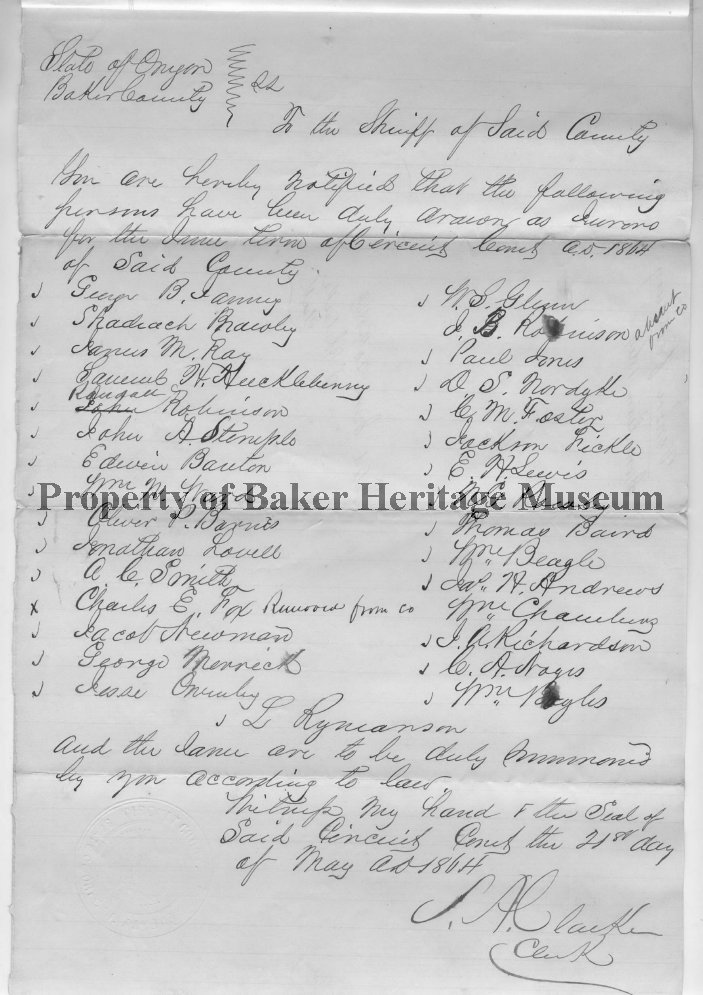 State of Oregon
Baker County } SS
To the Sheriff of Said County
You are hereby notified that the following
persons have been duly drawn as Jurors
for the June term of Circuit Court A.D. 1864
of Said County
George B.
Shadrach Brawley
James M. Ray
Samuel H. Huckleberry
Randall
John Robinson
John A Stemple
Edwin Banton
Wm M Ford
Oliver P. Barnes
Jonathan Lovell
A. C. Smith
x Charles E. Fox Removed from co
Jacob Newman
George Merrick
Jesse
W. S. Glenn
J. B. Robinson absent from co
Paul Jones
D. S. Nordyke
C. M. Foster
Jackson Tickle
E. H Lewis
Thomas Baird
Wm Beagle
Jas. H. Andrews
Wm Chambers
J. A. Richardson
C. A. Noyes
Wm Bayles
L Rymanson
And the same are to be duly summoned
by you according to law.
Witness my hand & the Seal of
Said Circuit Court the 21st day
of May AD 1864
S. A. Clarke
Clerk
Property of Baker Heritage Museum